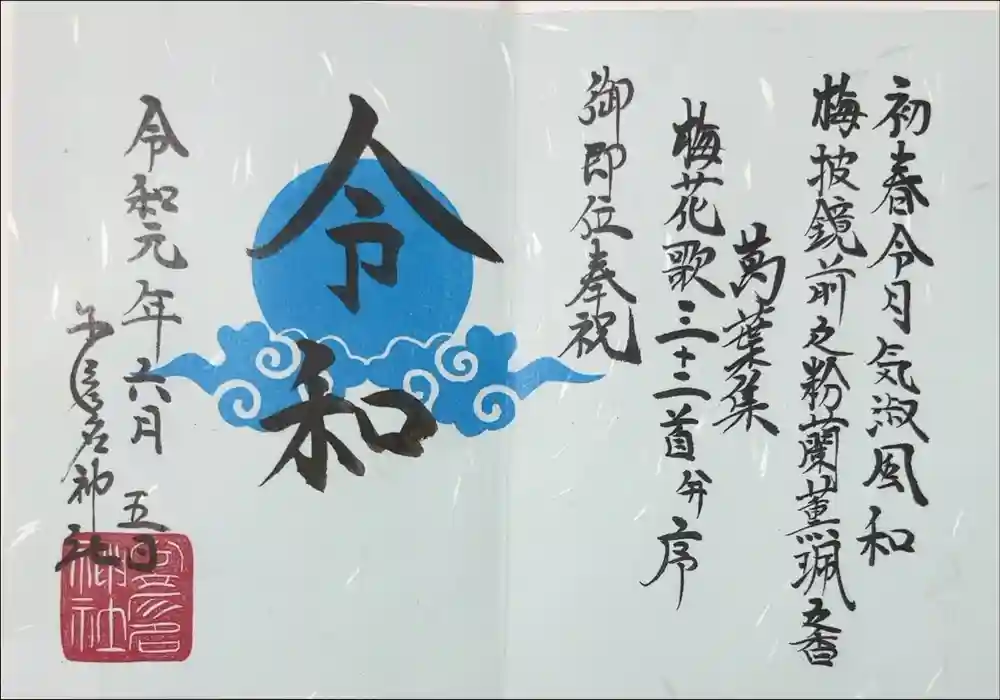 初春令月気淑風和
梅披鏡前之粉蘭薫珮之香
萬葉集
梅花歌三十二首弁序
御即位奉祝
令和
令和元年六月五日
名神社
神社